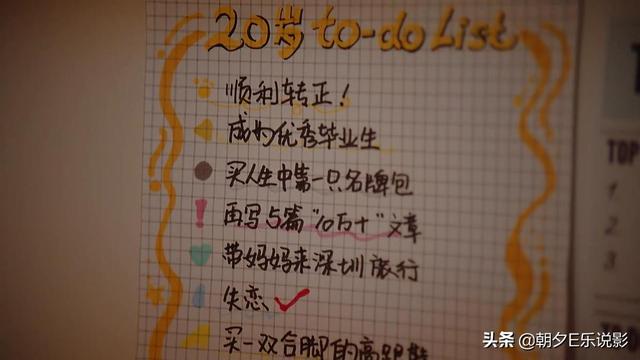 20岁 to-do List
顺利转正!
成为优秀毕业生
买人生中第一只名牌包
再写5篇“10万+”文章
带妈妈来深圳旅行
失恋 ✓
买一双合脚的高跟鞋
TOP
1
2
3
头条 @朝夕E乐说影